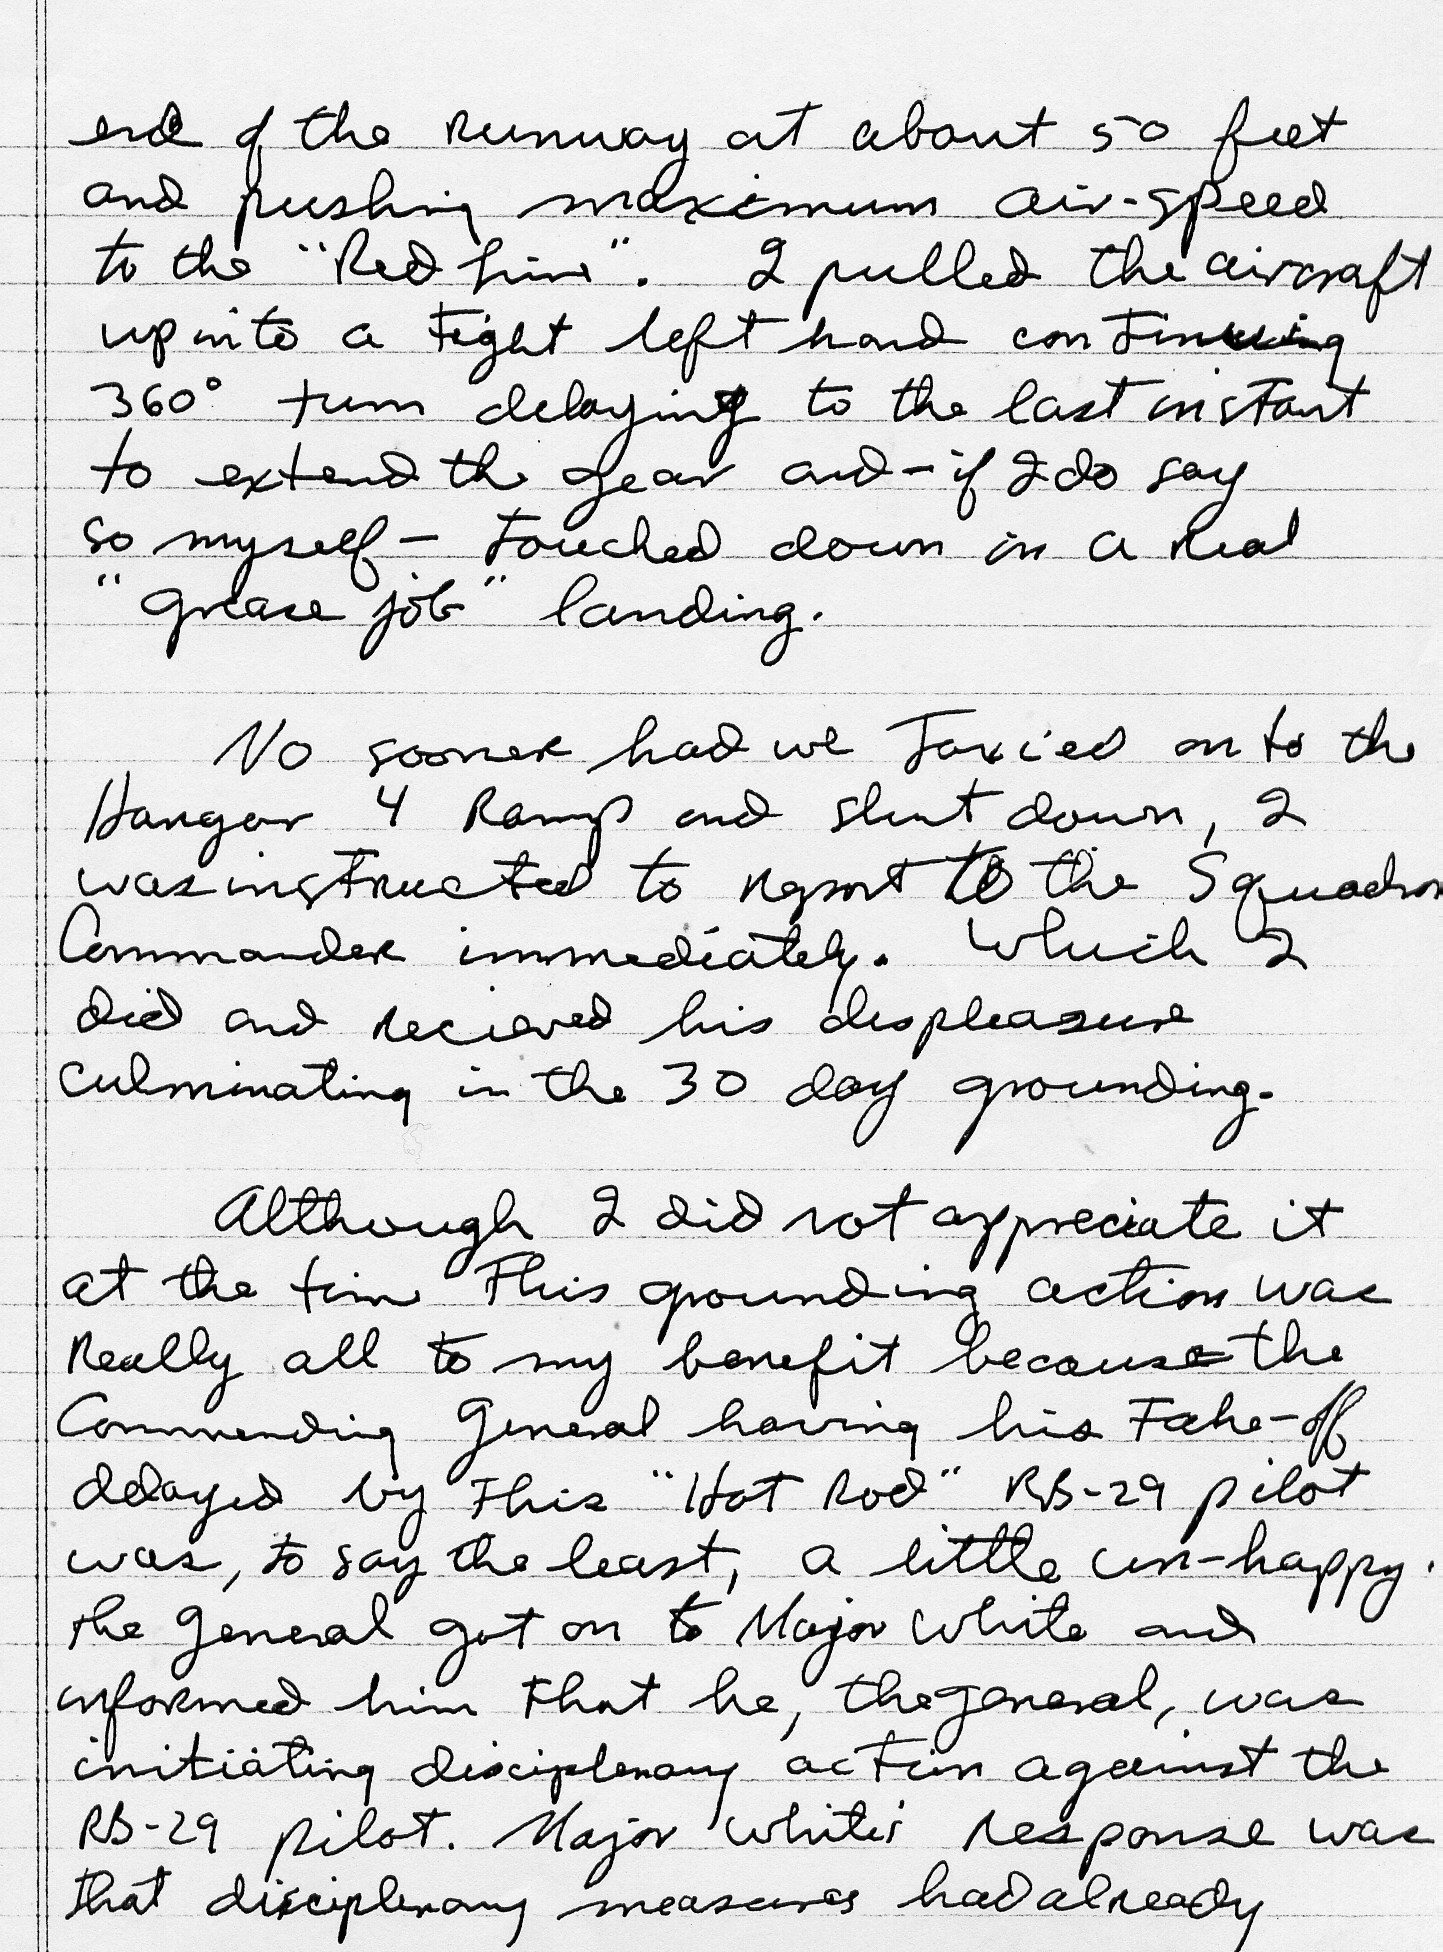 end of the Runway at about 50 feet
and pushing maximum air-speed
to the "Red line". I pulled the aircraft
up into a tight left hand continuing
360° turn delaying to the last instant
to extend the gear and - if I do say
so myself - touched down in a Real
"grease job" landing.
No sooner had we Taxied on to the
Hangar 4 Ramp and shut down, I
was instructed to report to the Squadron
Commander immediately. Which I
did and recieved his displeasure
culminating in the 30 day grounding.
Although I did not appreciate it
at the time This grounding action was
Really all to my benefit because the
Commending General having his Take-off
delayed by this "Hot Rod" RB-29 pilot
was, to say the least, a little un-happy.
the General got on to Major White and
informed him that he, the general, was
initiating disciplenary action against the
RB-29 pilot. Major White's response was
that disciplenary measures had already